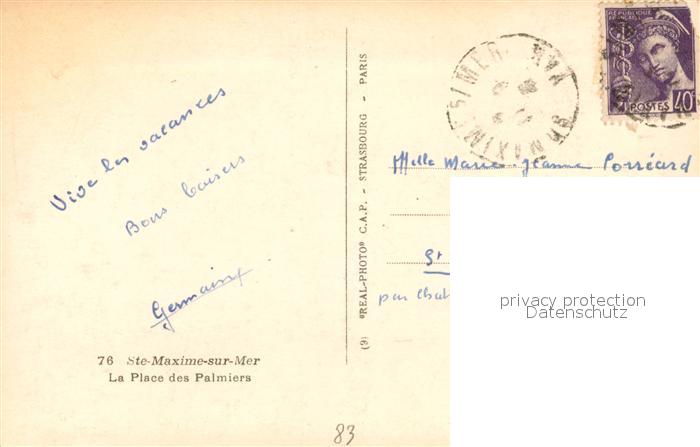 Vive les vacances
Bons baisers
Germaine
76 Ste-Maxime-sur-Mer
La Place des Palmiers
(9) "REAL-PHOTO" C.A.P. - STRASBOURG - PARIS
RÉPUBLIQUE
FRANÇAISE
POSTES 40c
VAR
Mlle Marie-Jeanne Porréard
St
par Chat
privacy protection
Datenschutz
83